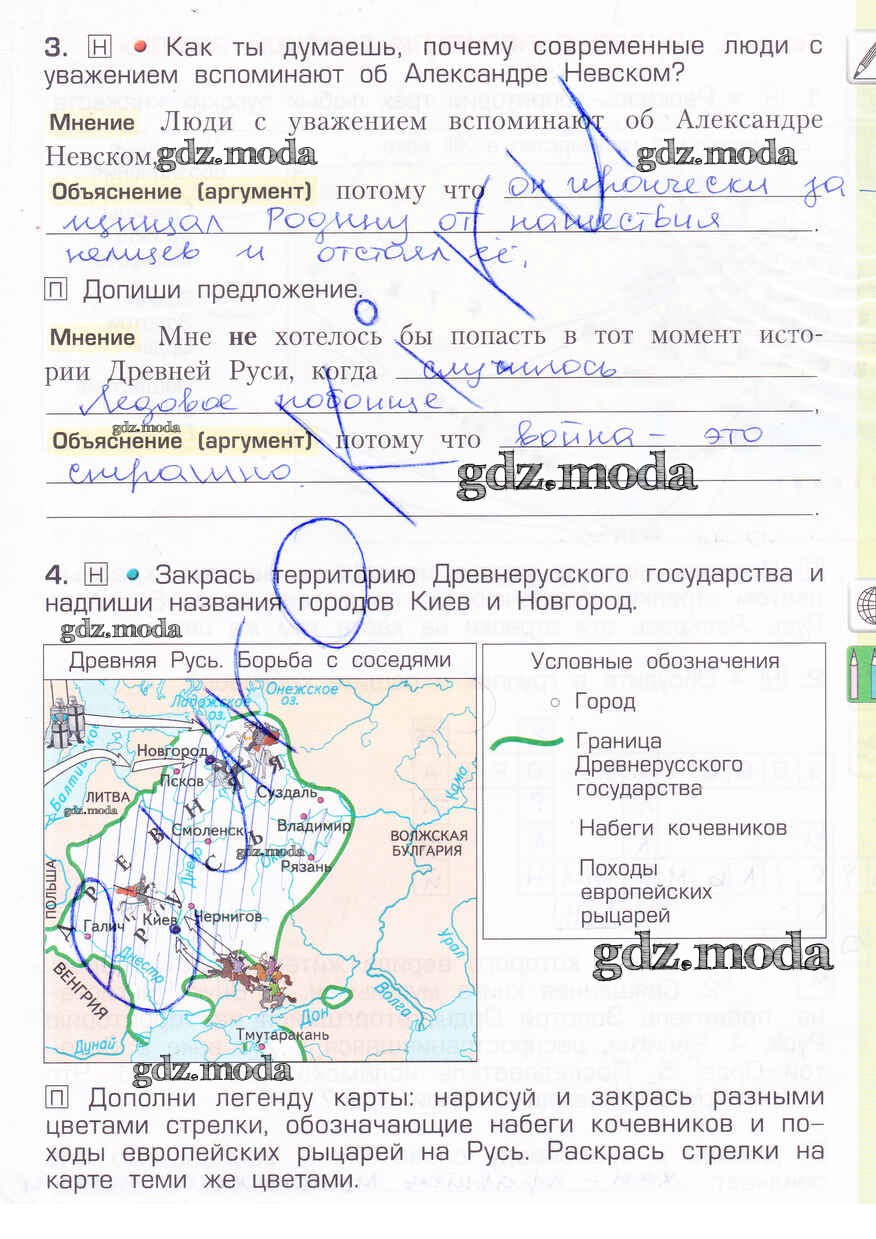 3. Н • Как ты думаешь, почему современные люди с
уважением вспоминают об Александре Невском?
Мнение Люди с уважением вспоминают об Александре
Невском,
gdz.moda
gdz.moda
Объяснение (аргумент) потому что он героически за-
щищал Родину от нашествия
немцев и отстоял её.
П Допиши предложение.
Мнение Мне не хотелось бы попасть в тот момент исто-
рии Древней Руси, когда случилось
Ледовое побоище,
gdz.moda
Объяснение (аргумент) потому что война – это
страшно.
gdz.moda
4. Н • Закрась территорию Древнерусского государства и
надпиши названия городов Киев и Новгород.
gdz.moda
Древняя Русь. Борьба с соседями
Ладожское оз.
Онежское оз.
Балтийское
Новгород
Псков
ЛИТВА
gdz.moda
Суздаль
Владимир
Смоленск
gdz.moda
Ока
Рязань
Кама
ВОЛЖСКАЯ
БУЛГАРИЯ
ПОЛЬША
ДРЕВНЯЯ
РУСЬ
Днепр
Галич
Киев
Чернигов
Днестр
ВЕНГРИЯ
Дунай
Дон
Волга
Урал
Тмутаракань
gdz.moda
Условные обозначения
Город
Граница
Древнерусского
государства
Набеги кочевников
Походы
европейских
рыцарей
gdz.moda
П Дополни легенду карты: нарисуй и закрась разными
цветами стрелки, обозначающие набеги кочевников и по-
ходы европейских рыцарей на Русь. Раскрась стрелки на
карте теми же цветами.